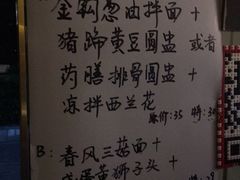 金钩葱油拌面+
猪蹄黄豆圆盅 或者
药膳排骨圆盅+
凉拌西兰花
原价:35 特:
B:春风三菇面+
黄狮子头+